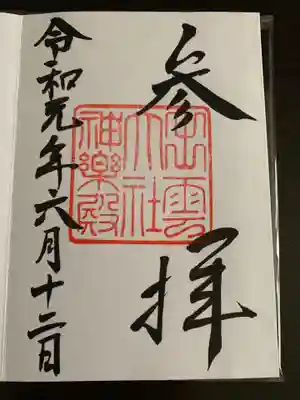 参拝
出雲
大社
神楽殿
令和元年六月十二日